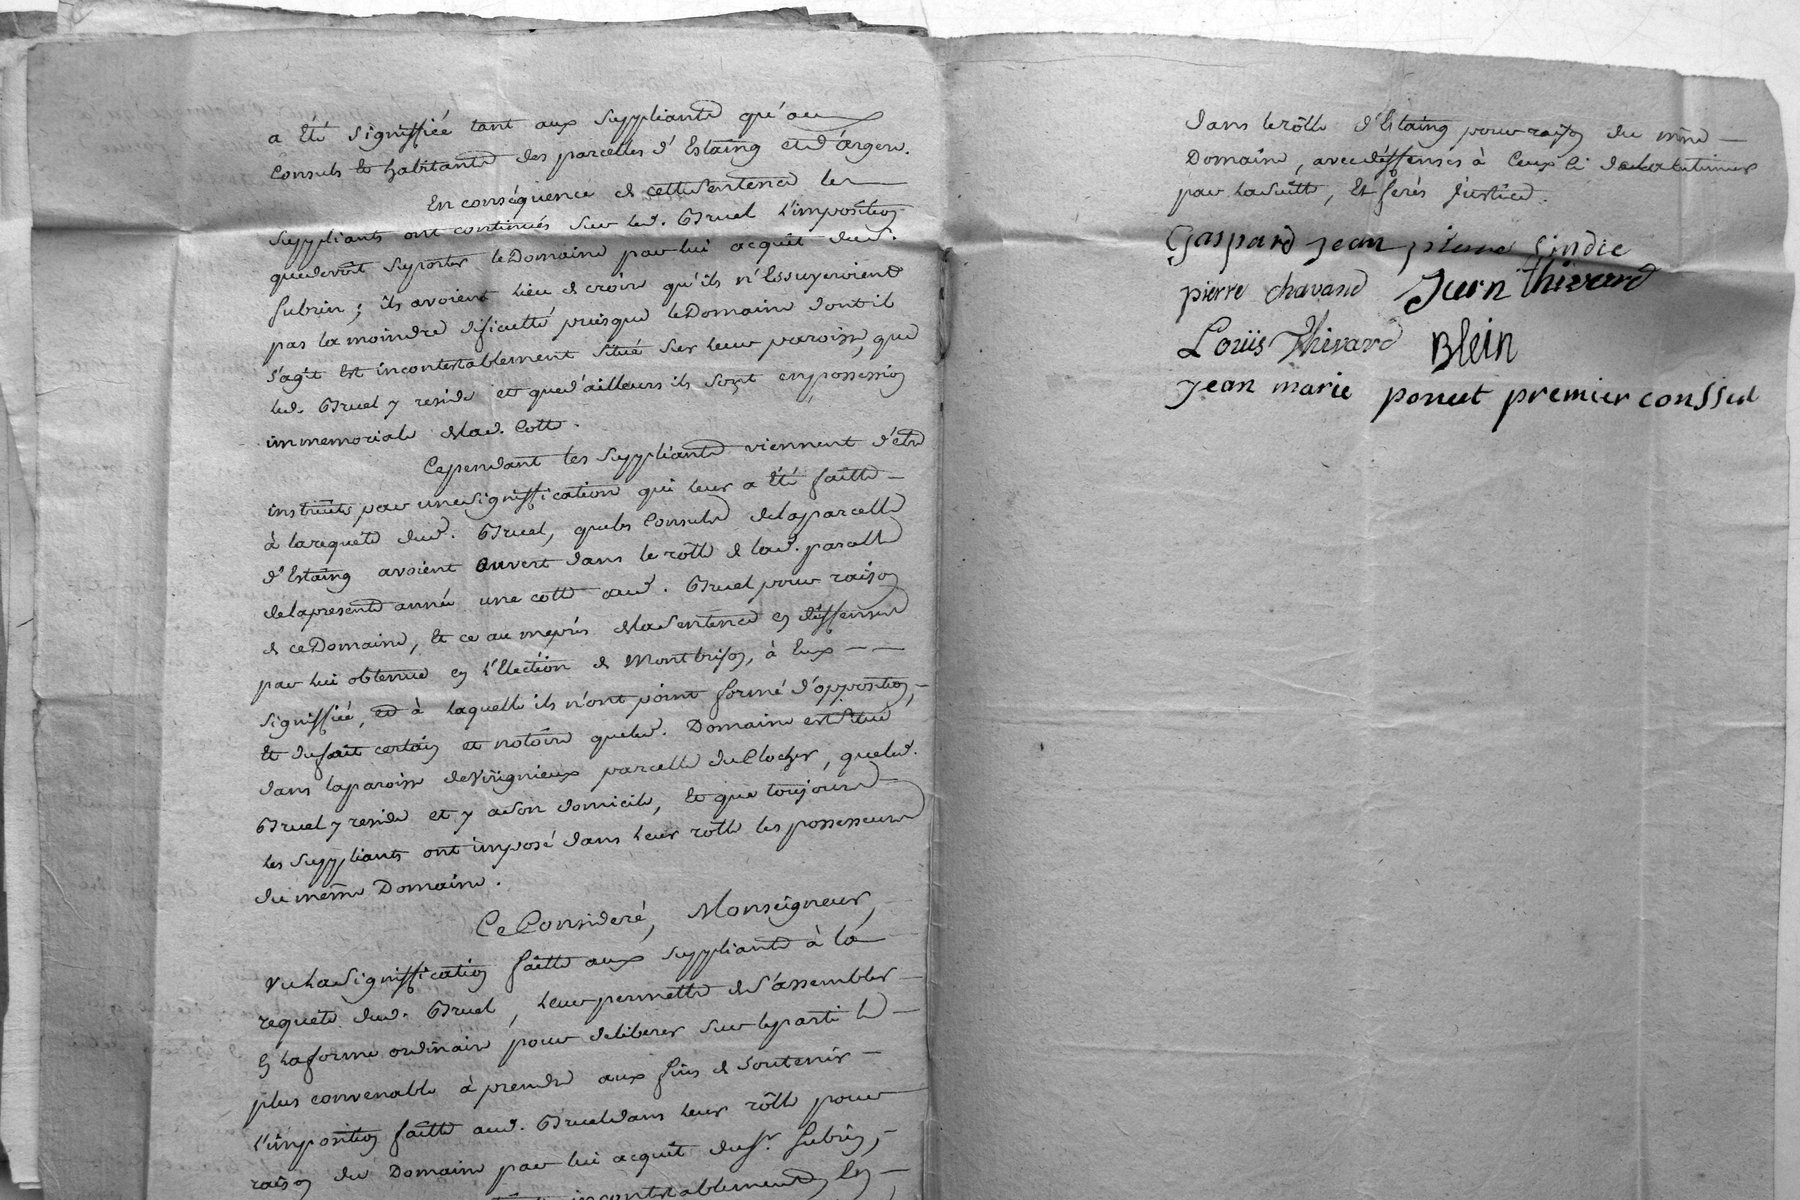 a été signiffiée tant aux suppliants qu'aux
Consuls et habitants des parcelles d'Estaing et d'Argen.
En conséquence de cette sentence les
suppliants ont continués sur led. Bruel l'imposition
que devoit suporter le Domaine par lui acquit dud.
Subrin; ils avoient lieu de croire qu'ils n'Essuyeroient
pas la moindre dificulté puisque le Domaine dont il
s'agit Est incontestablement situé sur leur paroisse, que
led. Bruel y reside et que d'ailleurs ils sont en possession
immemoriale de lad. Cotte.
Cependant les suppliants viennent d'etre
instruits par une signiffication qui leur a été faitte
à la requete dud. Bruel, que les Consuls de la parcelle
d'Estaing avoient ouvert dans le rôlle de lad. parcelle
de la presente année une cotte aud. Bruel pour raison
de ce Domaine, Et ce au mepris de la sentence en deffenses
par lui obtenue en l'Election de Montbrison, à Eux
signiffiée, et à laquelle ils n'ont point formé d'opposition,
Et du fait certain et notoire que led. Domaine est situé
dans la paroisse de Virignieux parcelle du Clocher, que led.
Bruel y reside et y a son domicile, Et que toujours
les suppliants ont imposé dans leur rolle les possesseurs
du même Domaine.
Ce Consideré, Monseigneur,
vu la signiffication faitte aux suppliants à la
requete dud. Bruel, leur permettre de s'assembler
En la forme ordinaire pour deliberer sur le parti le
plus convenable à prendre aux fins de soutenir
l'imposition faitte aud. Bruel dans leur rôlle pour
raison du Domaine par lui acquit du Sr. Subrin,
incontestablement En
dans le rôlle d'Estaing pour raison du même
Domaine, avec deffenses à Ceux ci de la
par la suitte, Et ferés justice.
Gaspard jean pierre sindic
pierre chavand Jean thivard
Loüis Thivard Blein
jean marie poncet premier conssul